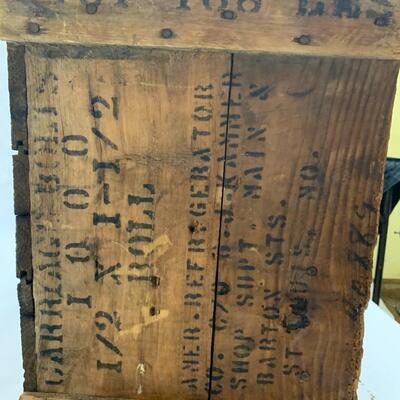 CARRIAGE BOLTS
1000
1/2 X 1-1/2
ROLL
AMER. REFRIGERATOR
CO. C/O
SHOP SUPT. MAIN &
BARTON STS.
ST LOUIS, MO.